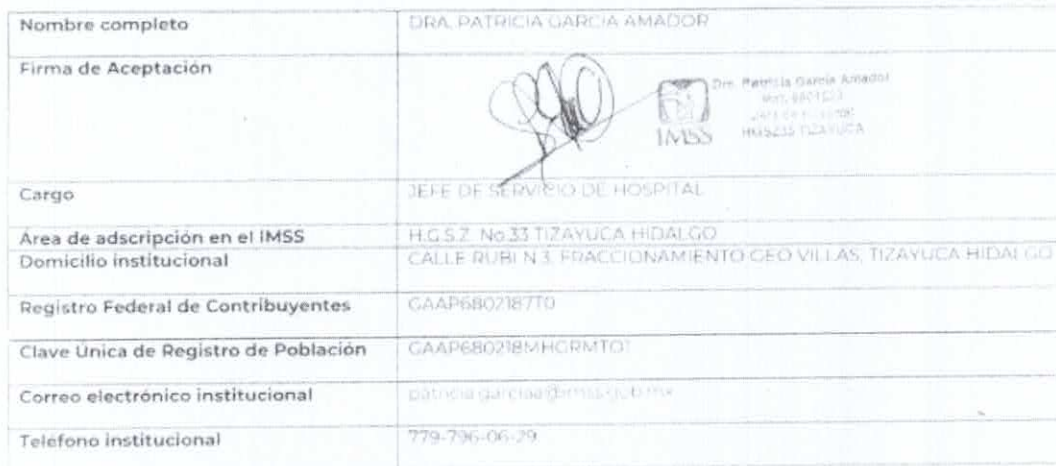 Nombre completo DRA. PATRICIA GARCIA AMADOR
Firma de Aceptación
Dra. Patricia García Amador
IMSS HGSZ33 TIZAYUCA
Cargo JEFE DE SERVICIO DE HOSPITAL
Área de adscripción en el IMSS H.G.S.Z. No.33 TIZAYUCA HIDALGO
Domicilio institucional CALLE RUBI N 3, FRACCIONAMIENTO GEO VILLAS, TIZAYUCA HIDALGO
Registro Federal de Contribuyentes GAAP6802187T0
Clave Única de Registro de Población GAAP680218MHGRMT01
Correo electrónico institucional patricia.garciaa@imss.gob.mx
Teléfono institucional 779-796-06-29